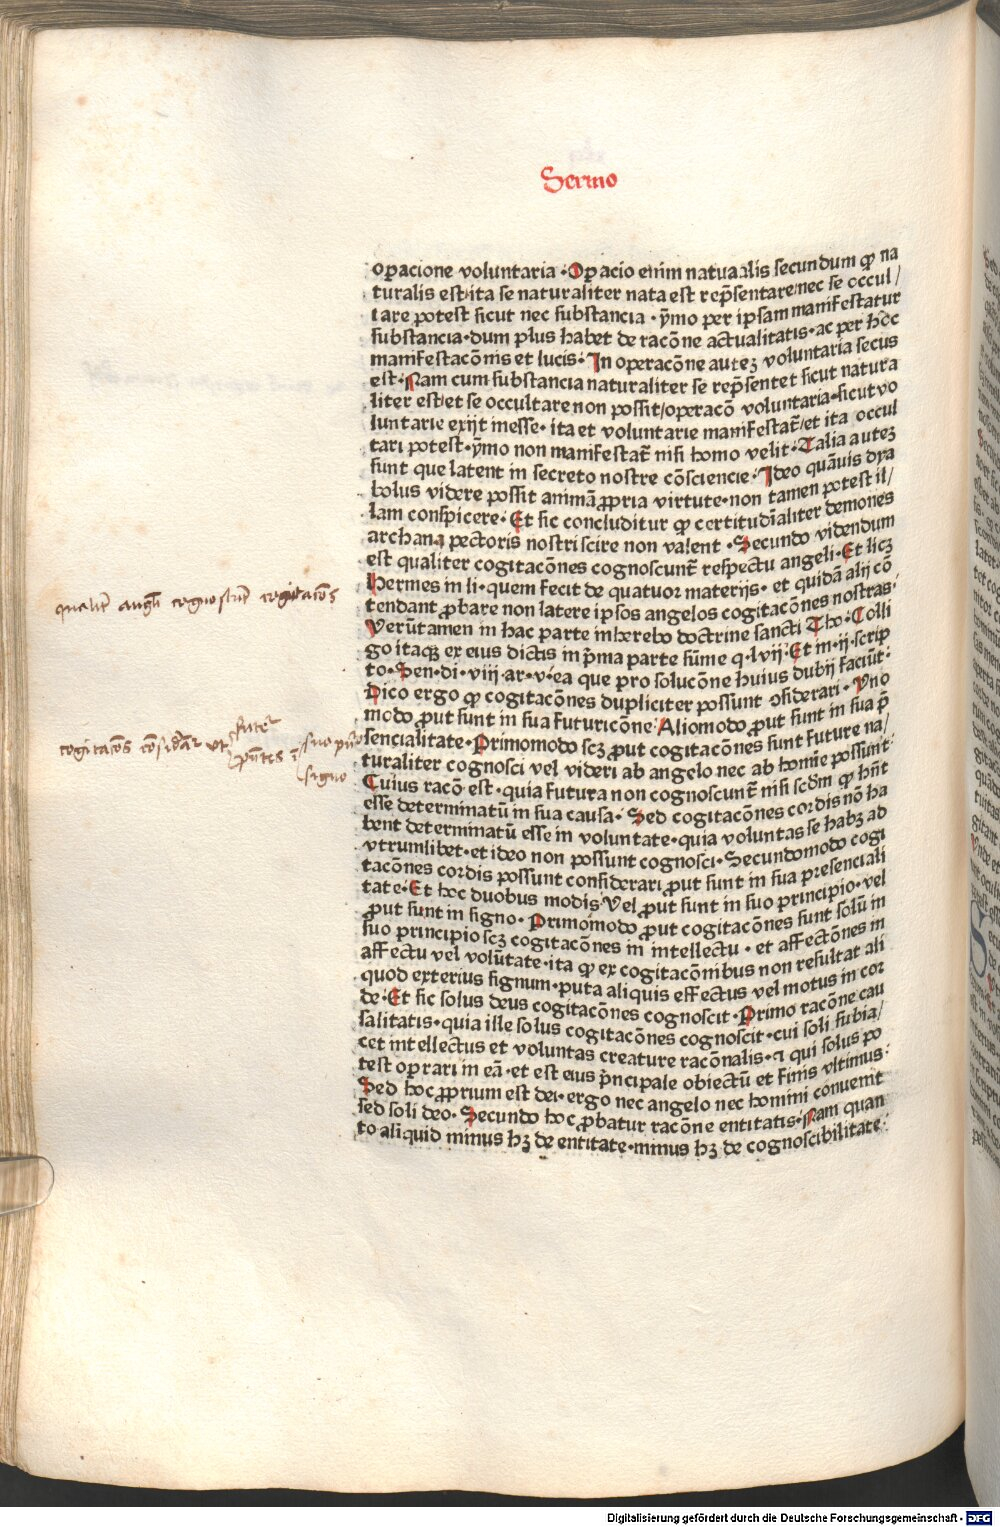 Sermo
oꝑacione voluntaria · Oꝑacio enim natuaalis secundum ꝙ na
turalis est/ita se naturaliter nata est rep̃sentare/nec se occul/
tare potest sicut nec substancia · ẏmo per ipsam manifestatur
substancia · dum plus habet de racõne actualitatis · ac per hoc
manifestacõnis et lucis · In operacõne autez voluntaria secus
est · Nam cum substancia naturaliter se rep̃sentet sicut natura
liter est/et se occultare non possit/operacõ voluntaria · sicut vo
luntarie exijt inesse · ita et voluntarie manifestat̃/et ita occul
tari potest · ẏmo non manifestat̃ nisi homo velit · Talia autez
sunt que latent in secreto nostre cõsciencie · Ideo quãuis dya
bolus videre possit animã ꝓpria virtute · non tamen potest il/
lam conspicere · Et sic concluditur ꝙ certitudĩaliter demones
archana pectoris nostri scire non valent · Secundo videndum
est qualiter cogitacõnes cognoscunt̃ respectu angeli · Et licꝫ
Hermes in li · quem fecit de quatuor materijs · et quidã alij cõ
tendant ꝓbare non latere ipsos angelos cogitacõnes nostras ·
Verũtamen in hac parte inherebo doctrine sancti Tho · Colli
go itaqꝫ ex eius dictis in p̃ma parte sũme q · lvij · Et in · ij · scrip
to · Sen · di · viij · ar · v · ea que pro solucõne huius dubij faciũt ·
Dico ergo ꝙ cogitacõnes dupliciter possunt ꝯsiderari · Vno
modo ꝓut sunt in sua futuricõne · Aliomodo ꝓut sunt in sua p̃
sencialitate · Primomodo scꝫ ꝓut cogitacõnes sunt future na/
turaliter cognosci vel videri ab angelo nec ab homĩe possunt ·
Cuius racõ est · quia futura non cognoscunt̃ nisi scd̃m ꝙ hñt
esse determinatũ in sua causa · Sed cogitacõnes cordis nõ ha
bent determinatũ esse in voluntate · quia voluntas se habꝫ ad
vtrumlibet · et ideo non possunt cognosci · Secundomodo cogi
tacõnes cordis possunt considerari ꝓut sunt in sua presenciali
tate · Et hoc duobus modis Vel ꝓut sunt in suo principio · vel
ꝓut sunt in signo · Primomodo ꝓut cogitacõnes sunt solũ in
suo principio scꝫ cogitacõnes in intellectu · et affectõnes in
affectu vel volũtate · ita ꝙ ex cogitacõnibus non resultat ali
quod exterius signum · puta aliquis effectus vel motus in cor
de · Et sic solus deus cogitacõnes cognoscit · Primo racõne cau
salitatis · quia ille solus cogitacõnes cognoscit · cui soli subia/
cet intellectus et voluntas creature racõnalis · ⁊ qui solus po
test oꝑari in eã · et est eius p̃ncipale obiectũ et finis vltimus ·
Sed hoc ꝓprium est dei · ergo nec angelo nec homini conuenit
sed soli deo · Secundo hoc ꝓbatur racõne entitatis · Nam quan
to aliquid minus hꝫ de entitate · minus hꝫ de cognoscibilitate ·
qualiter angeli cognoscunt cogitacões
cogitacões cõsidãr ut
futere
pñtes ĩ
suo pñ°
signo
Digitalisierung gefördert durch die Deutsche Forschungsgemeinschaft - DFG